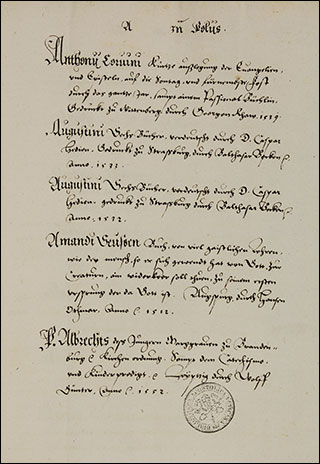 A in Folio.
Anthonij Corvini Kurtze auslegung der Evangelien
und Episteln, auff die Sontag und fürnembste Fest
durch das gantze Jar, sampt einem Passional Büchlin.
Gedruckt zu Wittenberg, durch Georgen Rhaw. 1539.
Augustini Sechs Bücher, verdeutscht durch D. Caspar
Hedien. Gedruckt zu Straßburg, durch Balthasar Becken
Anno. 1532.
Augustini Sechs Bücher, verdeutscht durch D. Caspar
Hedien. gedruckt zu Straßburg durch Balthasar Beken
Anno, 1532.
Amandi Seussen Buch, von viel geistlichen Lehren,
wie der mensch, so er sich gewendt hat von Gott, zur
Creaturn, ein widerkeer soll thuen, zu seinem ersten
ursprung der da Gott ist. Augspurg, durch Hansen
Othmar. Anno. 1512.
Albrechts des Jüngern Marggraven zu Branden-
burg Kirchen ordnung. Sampt dem Catechismo
und Kinder predigt. Leyptzig durch Wolff
Günter, Anno 1552.